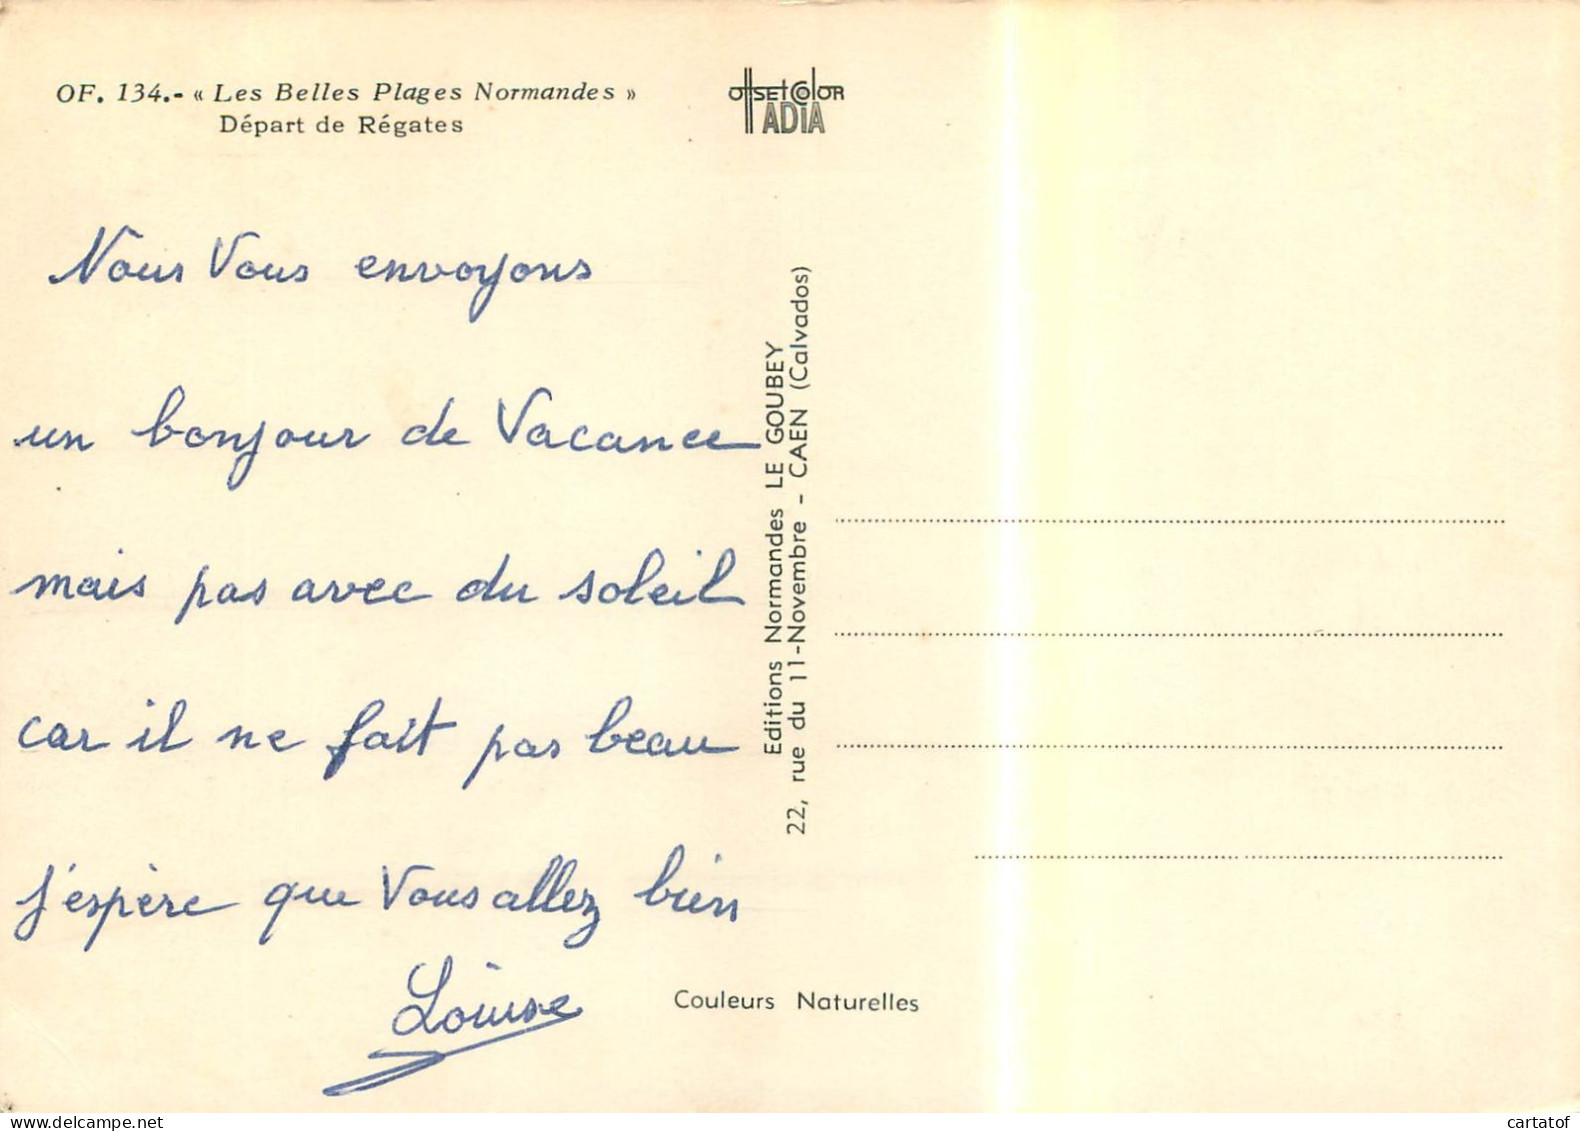 OF. 134.- « Les Belles Plages Normandes »
Départ de Régates
OffsetColor
IADIA
Nous Vous envoyons
un bonjour de Vacance
mais pas avec du soleil
car il ne fait pas beau
j'espère que Vous allez bien
Louise
Editions Normandes LE GOUBEY
22, rue du 11-Novembre - CAEN (Calvados)
Couleurs Naturelles
www.delcampe.net
cartatof